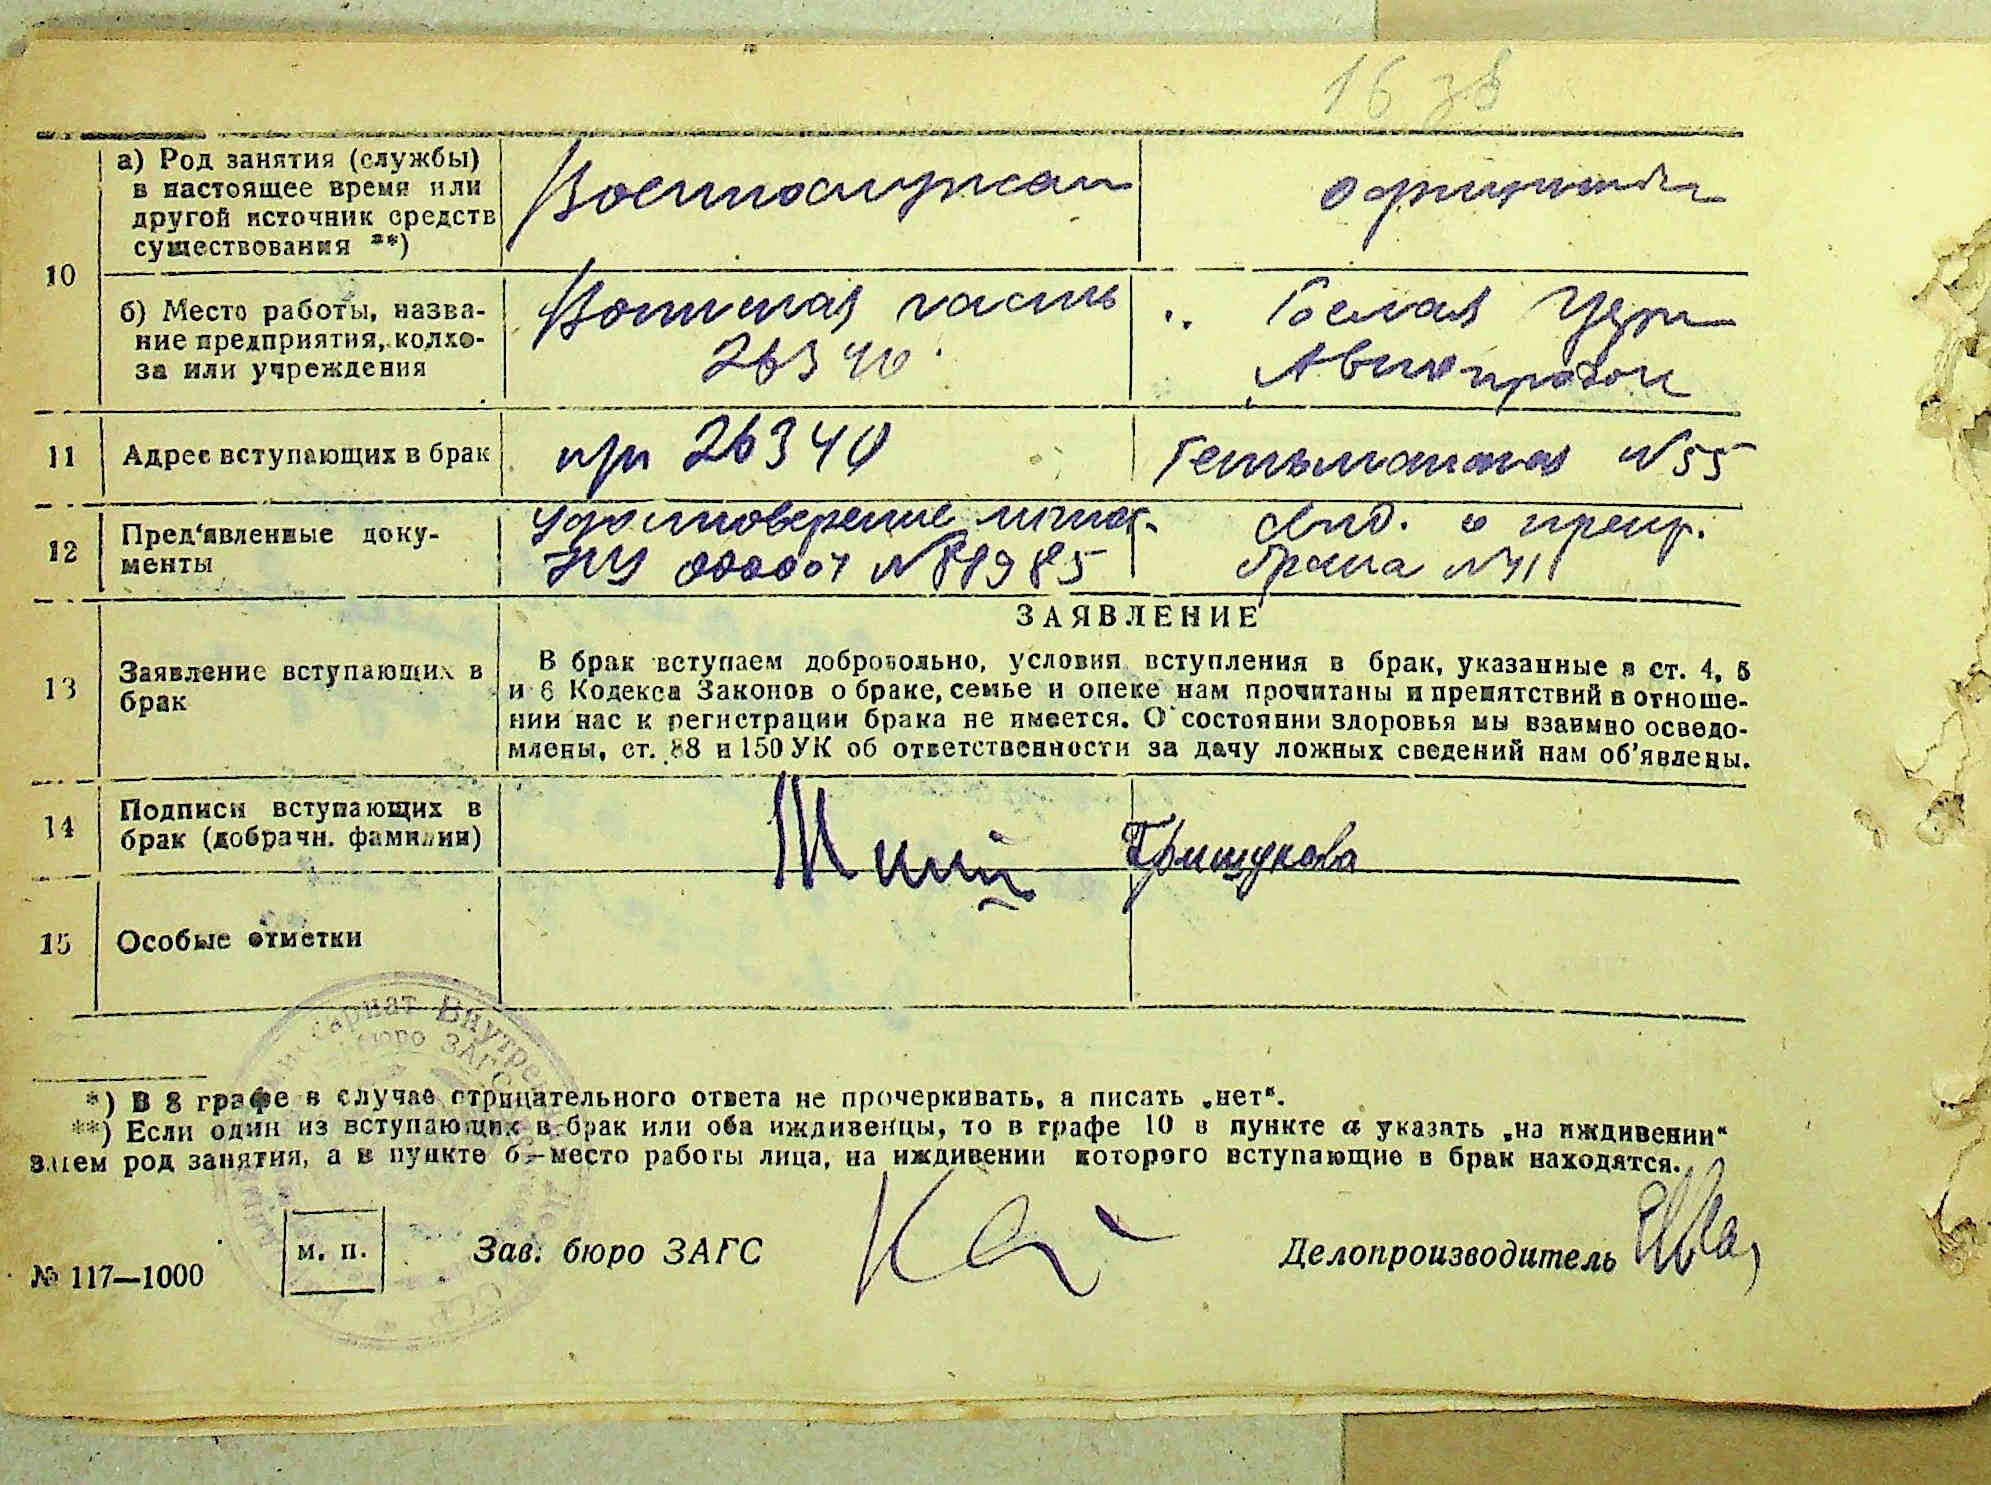 16 зв
10
а) Род занятия (службы)
в настоящее время или
другой источник средств
существования **)
Военнослужащ
официантка
б) Место работы, назва-
ние предприятия, колхо-
за или учреждения
Воинская часть
26340
Белая Церк
11
Адрес вступающих в брак
п/п 26340
Гетьманская №55
12
Пред'явленные доку-
менты
удостоверение личнос
№81985
свид. о прекр.
брака №41
ЗАЯВЛЕНИЕ
13
Заявление вступающих в
брак
В брак вступаем добровольно, условия вступления в брак, указанные в ст. 4, 5
и 6 Кодекса Законов о браке, семье и опеке нам прочитаны и препятствий в отноше-
нии нас к регистрации брака не имеется. О состоянии здоровья мы взаимно осведо-
млены, ст. 88 и 150 УК об ответственности за дачу ложных сведений нам об'явлены.
14
Подписи вступающих в
брак (добрачн. фамилии)
Грищукова
15
Особые отметки
*) В 8 графе в случае отрицательного ответа не прочеркивать, а писать „нет“.
**) Если один из вступающих в брак или оба иждивенцы, то в графе 10 в пункте а указать „на иждивении“
затем род занятия, а в пункте б—место работы лица, на иждивении которого вступающие в брак находятся.
м. п.
Зав. бюро ЗАГС
Делопроизводитель
№ 117—1000